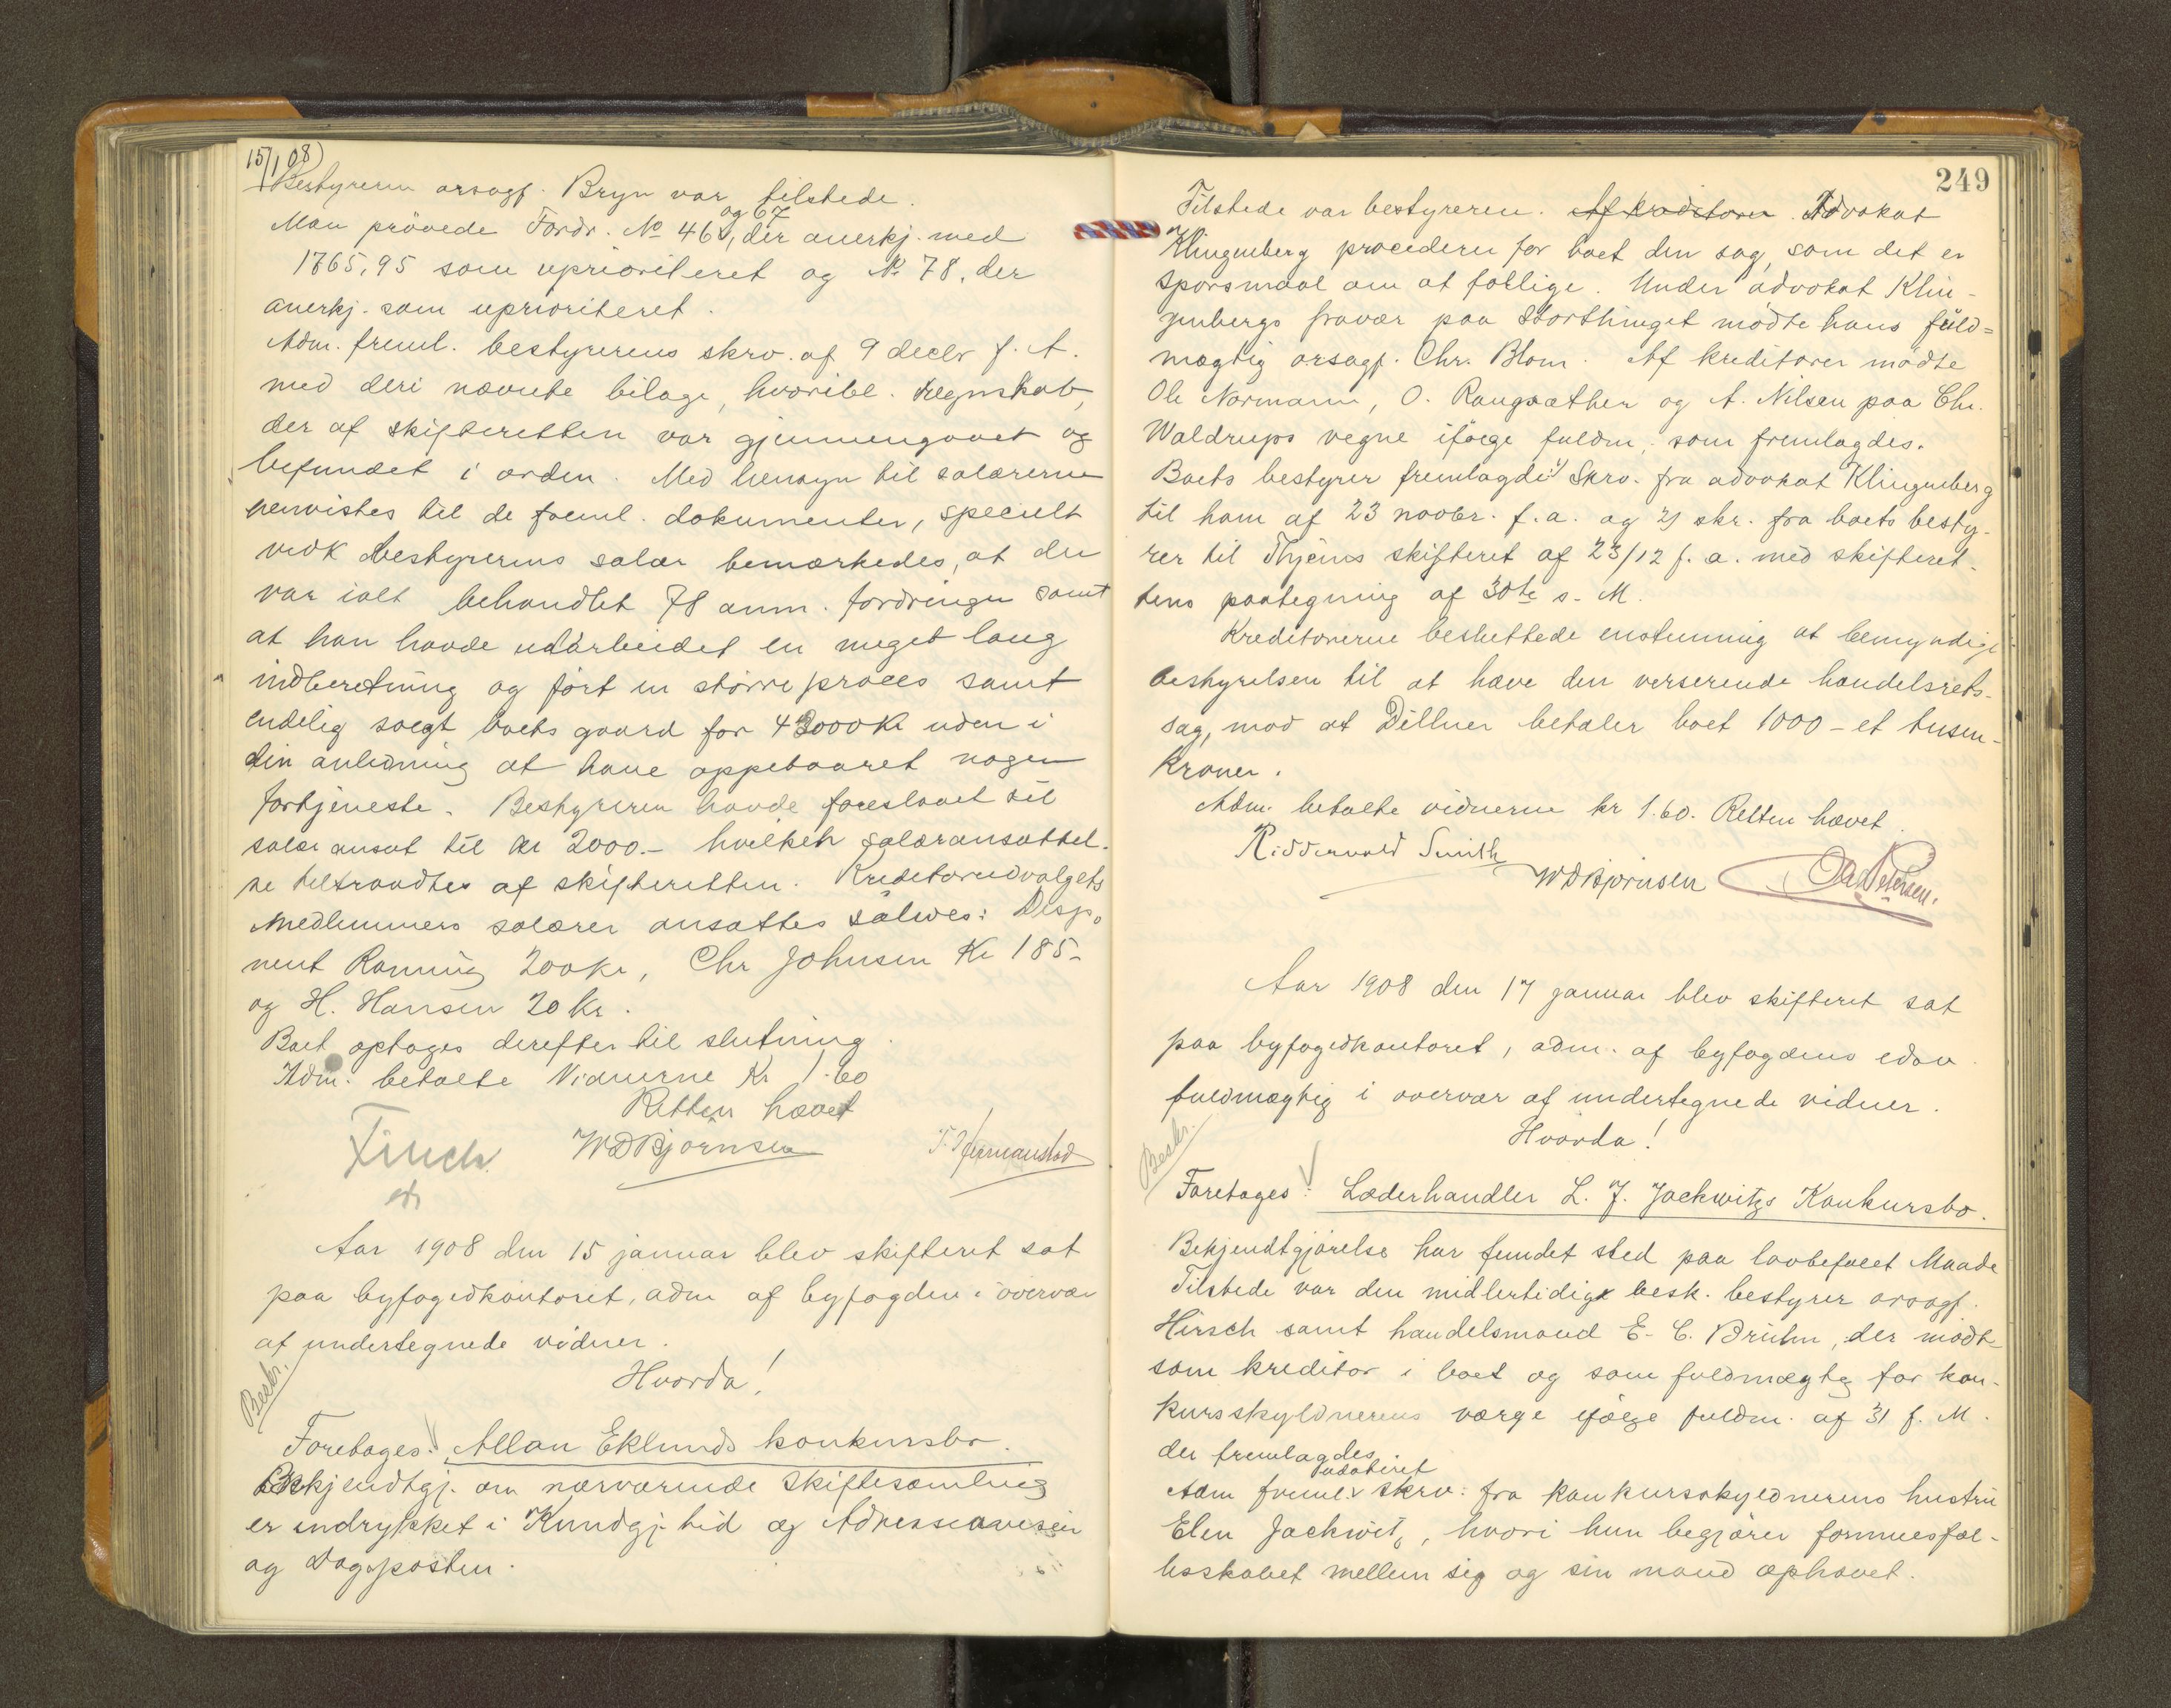 15/1 08)
Bestyreren orsagf. Bryn var tilstede.
Man prövede Fordr. No 46 og 67, der anerkj. med
1765,95 som uprioriteret og No 78, der
anerkj. som uprioriteret.
Adm. freml. bestyrerens skrv. af 9 decbr f. A.
med deri nævnte bilage, hvoribl. Regnskab,
der af skifteretten var gjennemgaaet og
befundet i orden. Med hensyn til salærerne
henvistes til de freml. dokumenter, specielt
vedk bestyrerens salær bemærkedes, at der
var ialt behandlet 78 anm. fordringer samt
at han havde udarbeidet en meget lang
indberetning og fört en större proces samt
endelig solgt boets gaard for 43000 Kr uden i
den anledning at have oppebaaret nogen
fortjeneste. Bestyreren havde foreslaaet sit
salær ansat til kr 2000.- hvilken salæransættel-
se tiltraadtes af skifteretten. Kreditorudvalgets
medlemmers salærer ansattes saaledes: Dispo
nent Ranning 200 kr, Chr Johnsen Kr 185-
og H. Hansen 20 kr.
Boet optages derefter til slutning.
Adm. betalte Vidnerne Kr 1.60
Retten hævet
Finch WDBjörnsen T. Hermanstad
Aar 1908 den 15 januar blev skifteret sat
paa byfogedkontoret, adm af byfogden i overvær
af undertegnede vidner.
Hvorda!
Beskr.
Foretages: Allan Eklunds konkursbo.
Bekjendtgj. om nærværende Skiftesamling
er indrykket i Kundgj. tid og Adresseavisen
og Dagsposten.
249
Tilstede var bestyreren. Af kreditorer Advokat
Klingenberg procederer for boet den sag, som det er
Spörsmaal om at forlige. Under advokat Klin-
genbergs fravær paa Storthinget mödte hans fuld=
mægtig orsagf. Chr. Blom. Af kreditorer mödte
Ole Normann, O. Rangsæther og A. Nilsen paa Chr.
Waldrups vegne ifölge fuldm. som fremlagdes.
Boets bestyrer fremlagde 1) Skrv. fra advokat Klingenberg
til ham af 23 novbr. f.a. og 2) skr. fra boets besty-
rer til Thjems skifteret af 23/12 f. a. med skifteret-
tens paategning af 30te s. M.
Kreditorerne besluttede enstemmig at bemyndige
bestyrelsen til at hæve den verserende handelsrets-
sag, mod at Dillner betaler boet 1000 - et tusen-
Kroner.
Adm. betalte vidnerne kr 1.60. Retten hævet.
Riddervold Smith WDBjörnsen Ole Petersen.
Aar 1908 den 17 januar blev skifteret sat
paa byfogedkontoret, adm. af byfogdens edsv.
fuldmægtig i overvær af undertegnede vidner.
Hvorda!
Beskr.
Foretages: Læderhandler L. J. Jackwitzs Konkursbo.
Bekjendtgjörelse har fundet sted paa lovbefalet Maade
Tilstede var den midlertidige besk. bestyrer orsagf.
Hirsch samt handelsmand E. C. Brühn, der mödte
som kreditor i boet og som fuldmægtig for kon-
kursskyldnerens værge ifölge fuldm. af 31 f. M.
der fremlagdes.
Adm freml. udateret skrv. fra konkursskyldnerens hustru
Elen Jackwitz, hvori hun begjærer formuesfæl-
lesskabet mellem sig og sin mand ophævet.